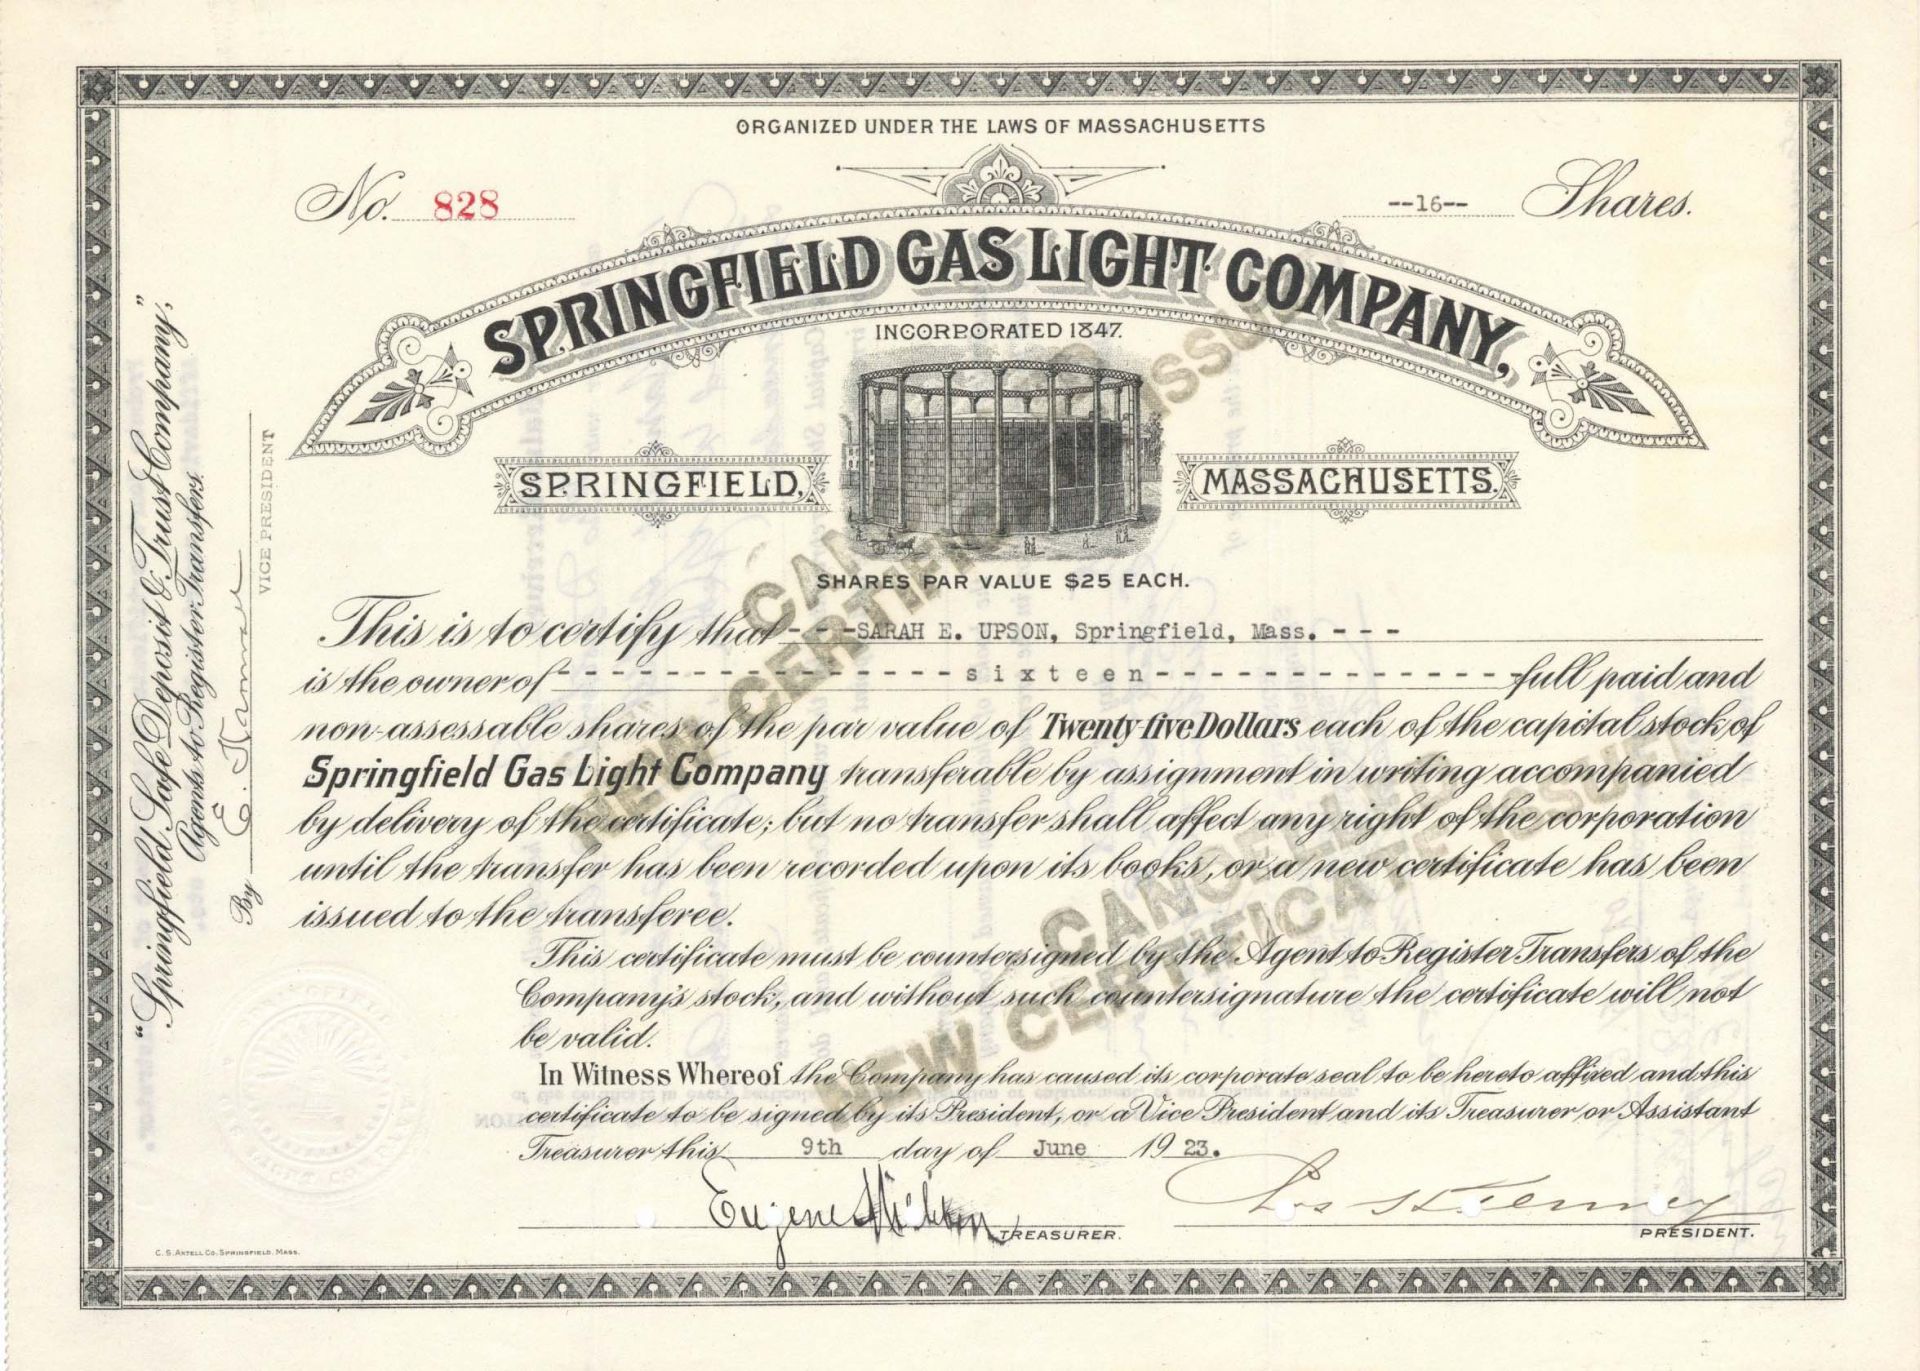 ORGANIZED UNDER THE LAWS OF MASSACHUSETTS
No. 828
--16-- Shares.
SPRINGFIELD GAS LIGHT COMPANY,
INCORPORATED 1847.
SPRINGFIELD, MASSACHUSETTS.
SHARES PAR VALUE $25 EACH.
This is to certify that - - -SARAH E. UPSON, Springfield, Mass. - - -
is the owner of - - - - - - - - - - - - - - - sixteen - - - - - - - - - - - - - - full paid and
non-assessable shares of the par value of Twenty-five Dollars each of the capital stock of
Springfield Gas Light Company transferable by assignment in writing accompanied
by delivery of the certificate; but no transfer shall affect any right of the corporation
until the transfer has been recorded upon its books, or a new certificate has been
issued to the transferee.
This certificate must be countersigned by the Agent to Register Transfers of the
Company's stock, and without such countersignature the certificate will not
be valid.
In Witness Whereof the Company has caused its corporate seal to be hereto affixed and this
certificate to be signed by its President, or a Vice President and its Treasurer or Assistant
Treasurer this 9th day of June 1923.
Eugene
TREASURER.
PRESIDENT.
C. S. AXTELL CO. SPRINGFIELD, MASS.
"Springfield Safe Deposit & Trust Company",
Agents to Register Transfers.
By E.
VICE PRESIDENT
CANCELLED
NEW CERTIFICATE ISSUED
CANCELLED
NEW CERTIFICATE ISSUED